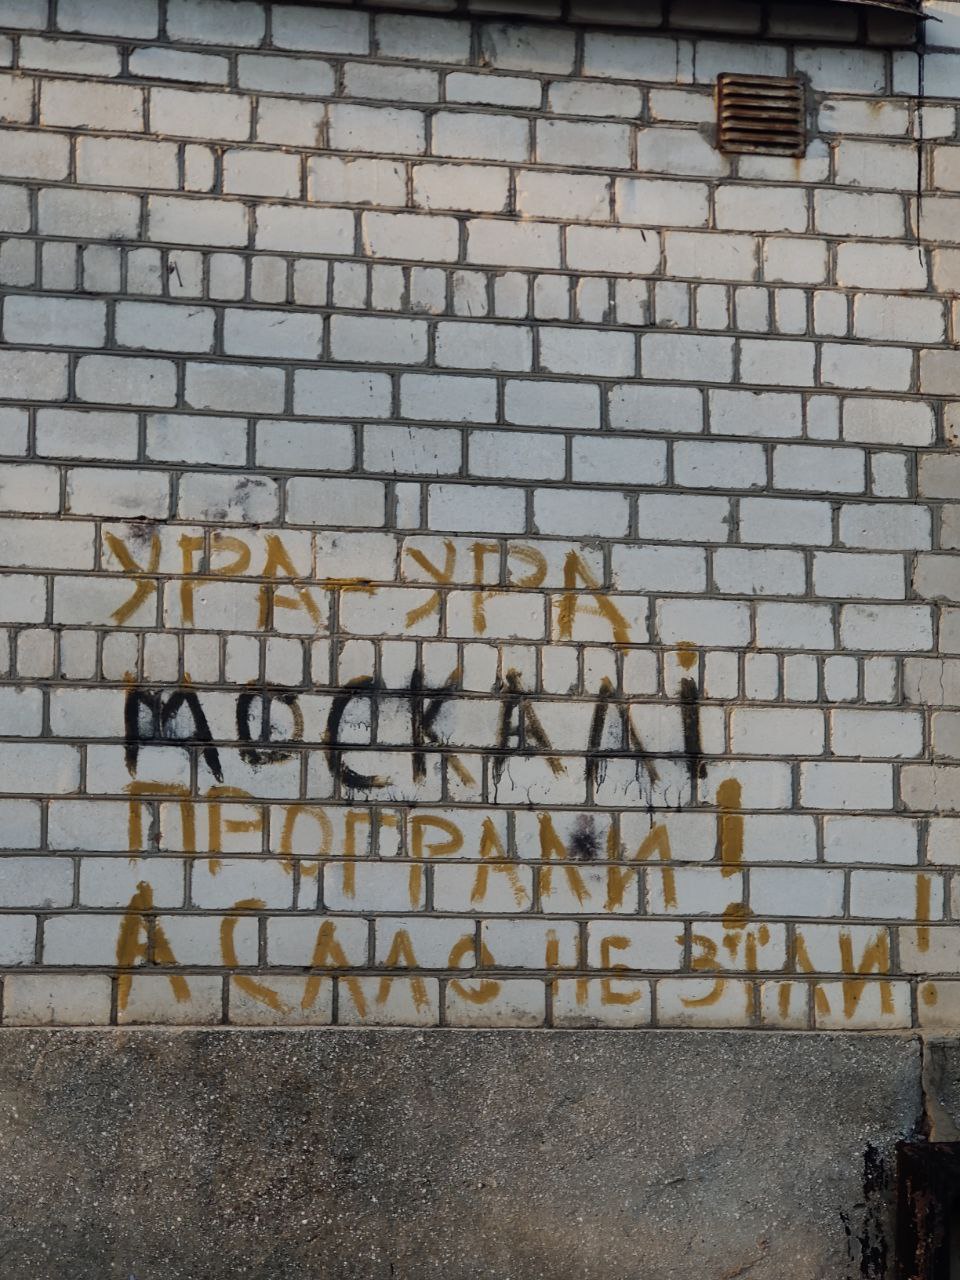 УРА-УРА
МОСКАЛІ
ПРОГРАЛИ!
А САЛО НЕ ВЗЯЛИ!